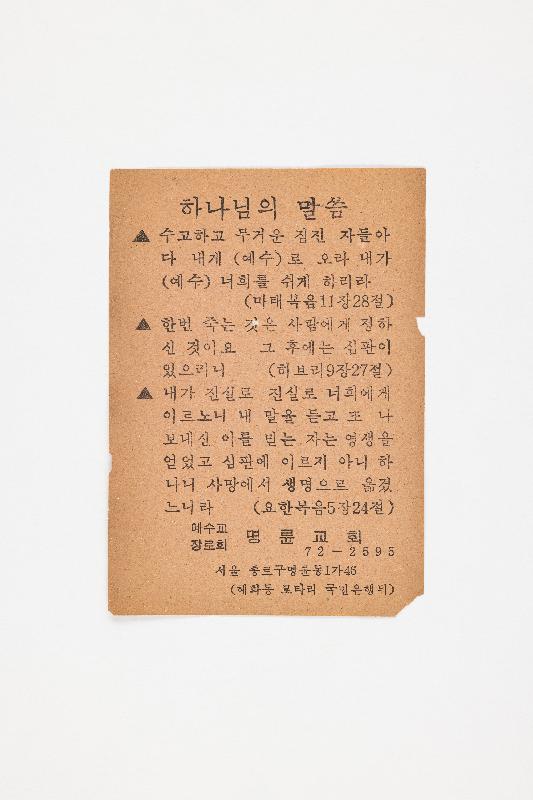 하나님의 말씀
▲ 수고하고 무거운 짐진 자들아
다 내게 (예수)로 오라 내가
(예수) 너희를 쉬게 하리라
(마태복음11장28절)
▲ 한번 죽는 것은 사람에게 정하
신 것이요 그 후에는 심판이
있으리니 (히브리9장27절)
▲ 내가 진실로 진실로 너희에게
이르노니 내 말을 듣고 또 나
보내신 이를 믿는 자는 영생을
얻었고 심판에 이르지 아니 하
나니 사망에서 생명으로 옮겼
느니라 (요한복음5장24절)
예수교
장로회 명륜교회
72-2595
서울 종로구명륜동1가46
(혜화동 로타리 국민은행뒤)